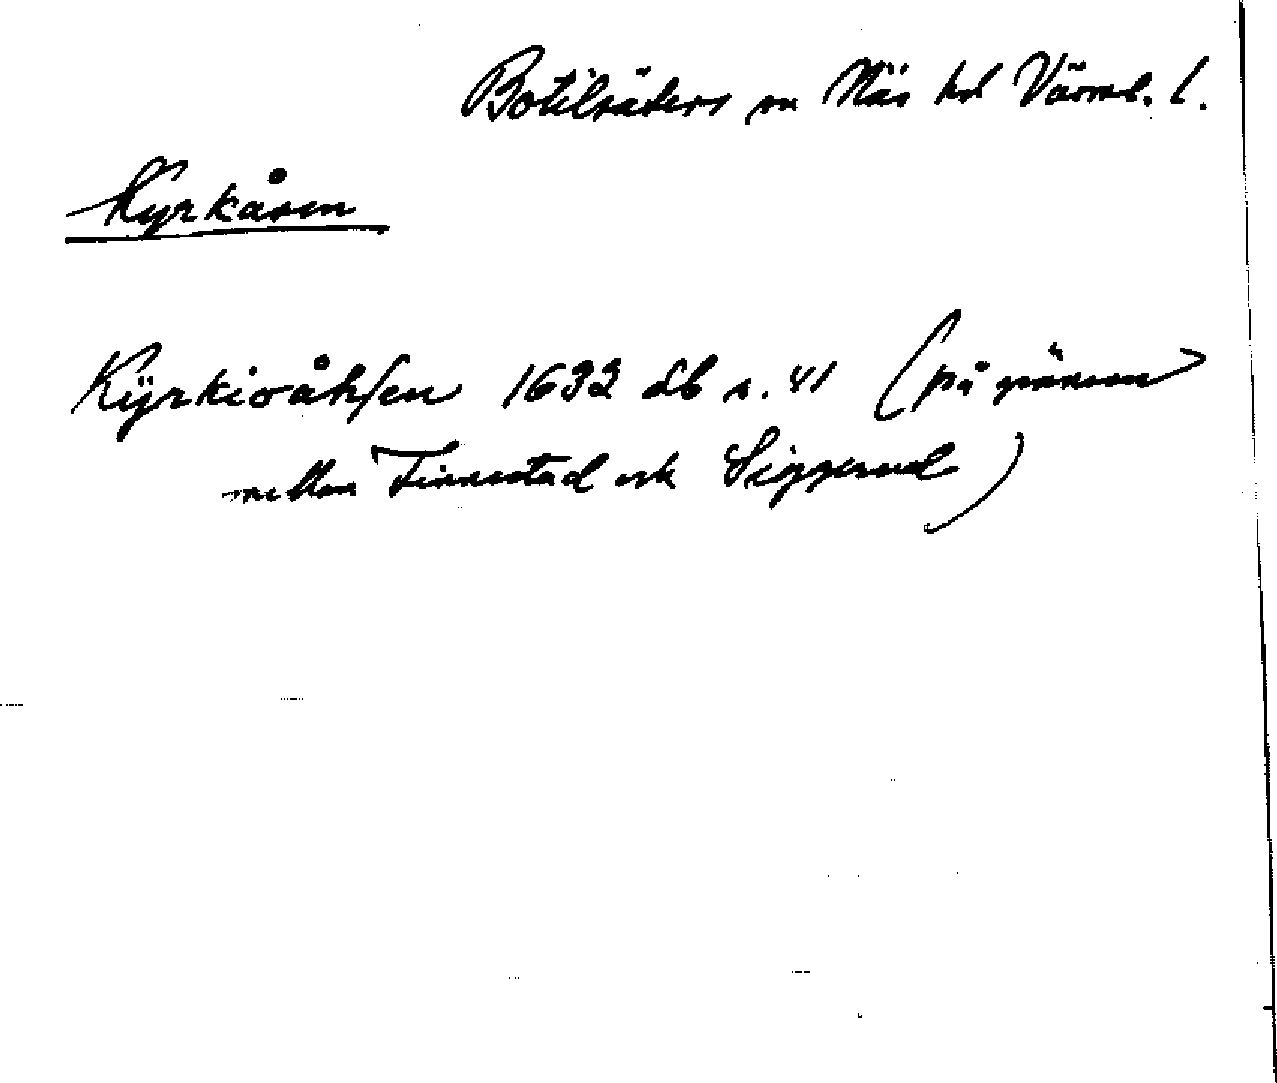 Botilsäters sn Näs hd Värml. l.
Kyrkåsen
Kÿrkioåhsen 1632 db s. 41 (på gränsen
mellan Finnestad och Siggerud)